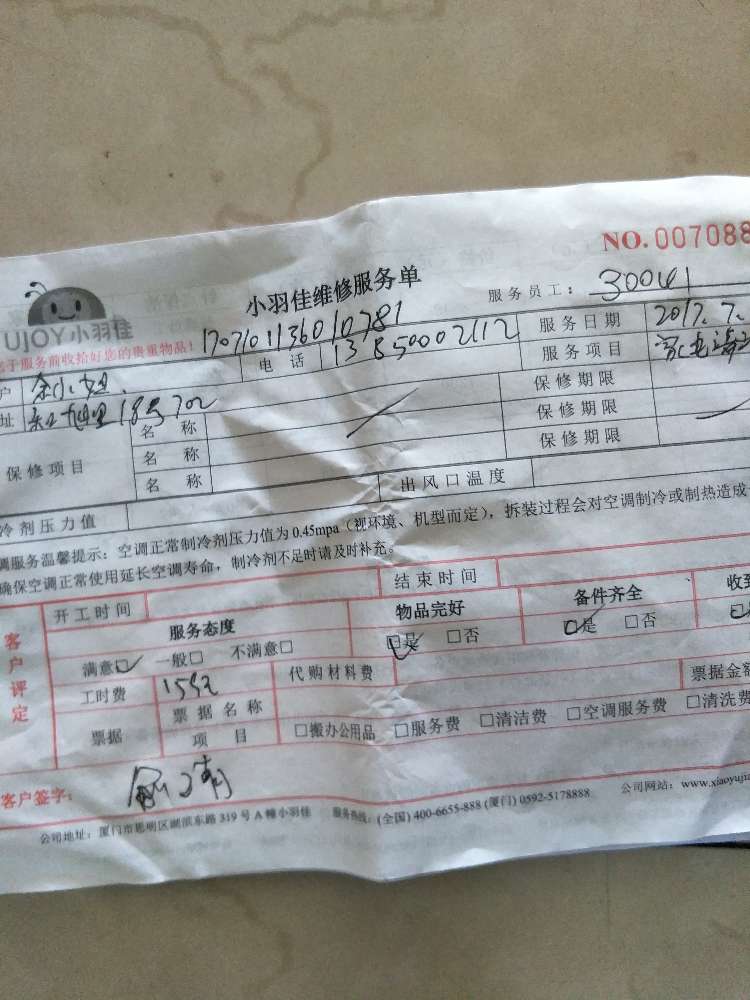 NO. 007088
小羽佳维修服务单
服务员工: 30041
UJOY小羽佳
于服务前收拾好您的贵重物品!
1707101136010781
户
电 话 13850002112
服务日期 2017.7.
址 18号702
服务项目
保修项目
名 称
保修期限
名 称
保修期限
名 称
保修期限
冷剂压力值
出风口温度
调服务温馨提示: 空调正常制冷剂压力值为0.45mpa(视环境、机型而定), 拆装过程会对空调制冷或制热造成
确保空调正常使用延长空调寿命, 制冷剂不足时请及时补充。
客户评定
开工时间
结束时间
服务态度
物品完好
备件齐全
收到
满意☑ 一般□ 不满意□
☑是 □否
☑是 □否
工时费
代购材料费
票据
票据名称
票据金额
项 目
□搬办公用品 □服务费 □清洁费 □空调服务费 □清洗费
客户签字:
公司地址: 厦门市思明区湖滨东路319号A幢小羽佳 服务热线: (全国) 400-6655-888 (厦门) 0592-5178888 公司网站: www.xiaoyujia